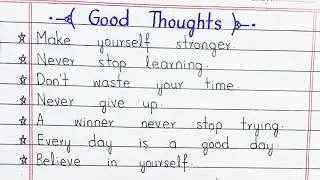 Good Thoughts
Make yourself stronger.
Never stop learning.
Don't waste your time.
Never give up.
A winner never stop trying.
Every day is a good day.
Believe in yourself.